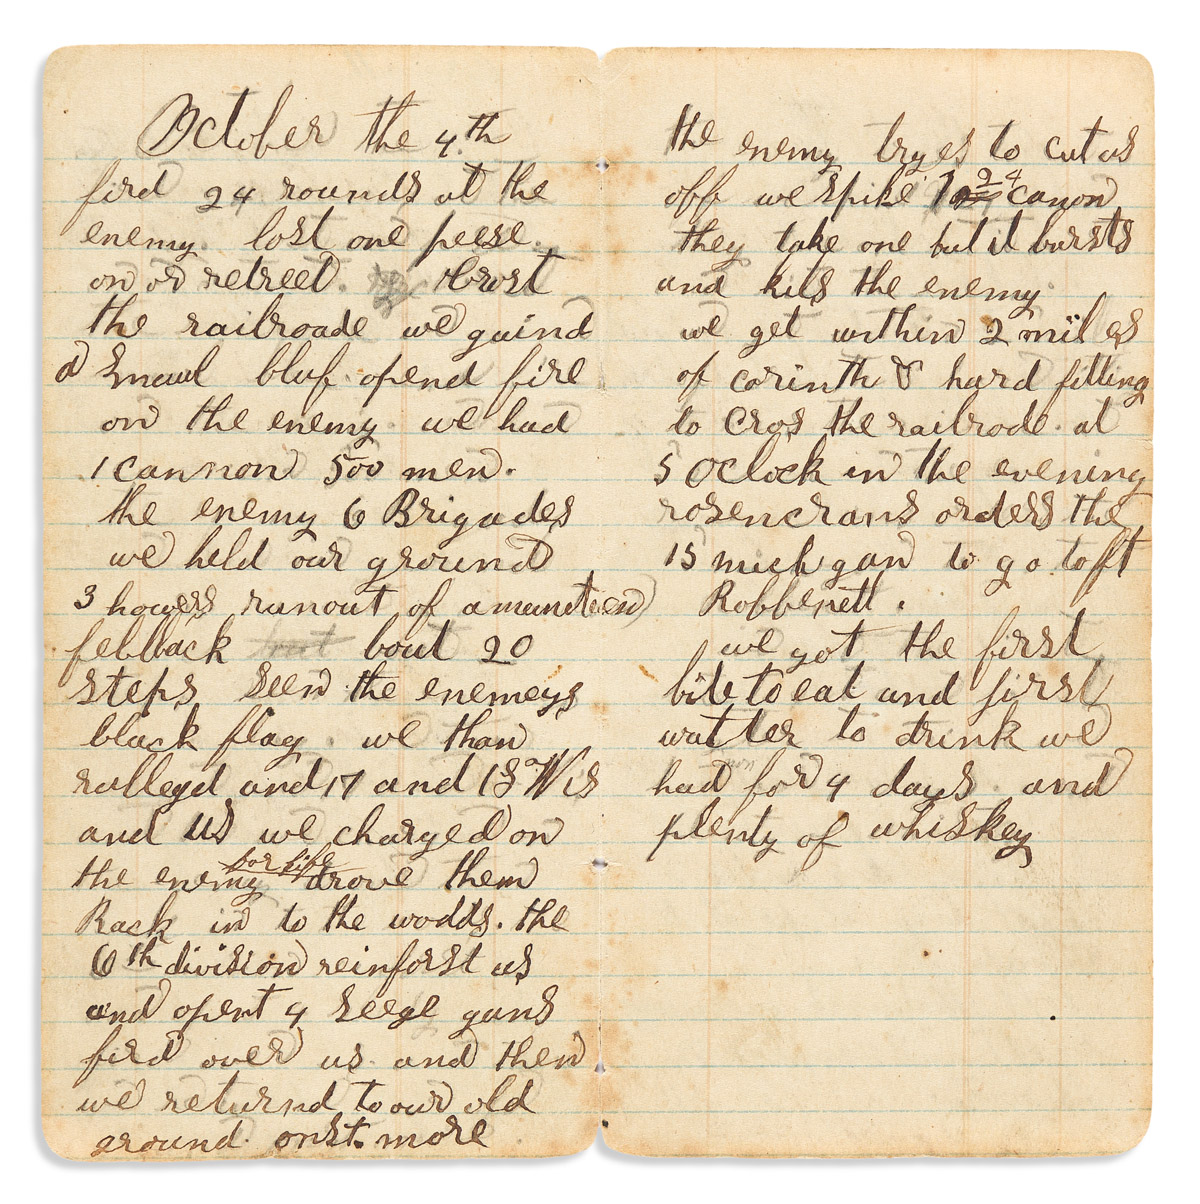 October the 4th
fird 24 rounds at the
enemy. lost one peese.
on or retreet. Crost
the railroade we gaind
a Smaul bluf. opend fire
on the enemy. we had
1 cannon 500 men.
the enemy 6 Brigades
we held our ground
3 howers runout of
fellback bout 20
steps Seen the enemeys
black flag. we than
ralleyd and 17 and 18 Wis
and us we charged on
for life
the enemy drove them
Back in to the wodds. the
6th division reinforst us
and opent 4 Seege guns
fird over us and then
we returnd to our old
ground onst more
the enemy tryes to cut us
off we spike 24 canon
they take one but it bursts
and kils the enemy.
we get within 2 miles
of corinth & hard fitting
to Cros the railrode. at
5 Oclock in the evening
rosencrans orders the
15 michgan to go to ft
Robbenett.
we got the first
bite to eat and first
watter to drink we
had for 4 days. and
plenty of whiskey